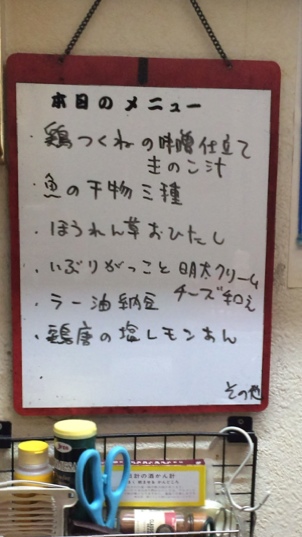 本日のメニュー
・鶏つくねの味噌仕立て
きのこ汁
・魚の干物三種
・ほうれん草おひたし
・いぶりがっこと明太クリーム
チーズ和え
・ラー油納豆
・鶏唐の塩レモンあん
・
その他